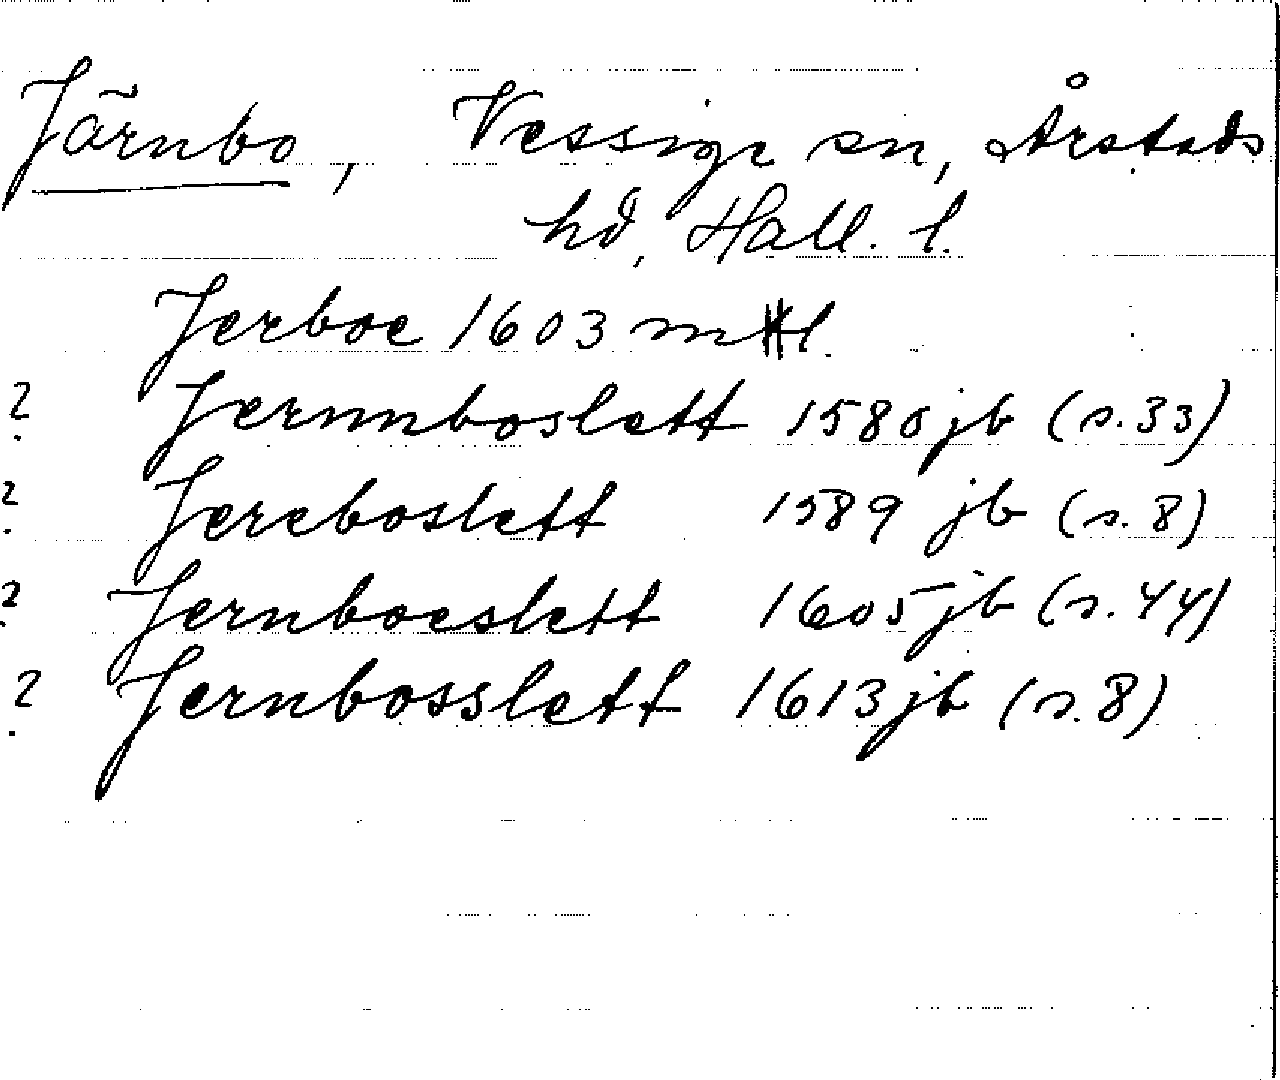 Järnbo, Vessige sn, Årstads
hd, Hall. l.
Jerboe 1603 mtl.
? Jernnboslett 1580 jb (s. 33)
? Jereboslett 1589 jb (s. 8)
? Jernboeslett 1605 jb (s. 44)
? Jernbosslett 1613 jb (s. 8)